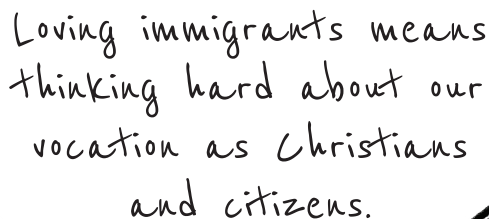 Loving immigrants means
thinking hard about our
vocation as Christians
and citizens.